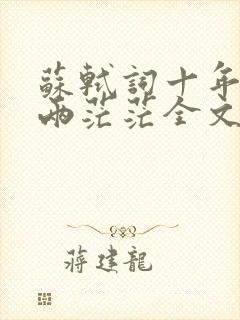 蘇軾詞十年
兩茫茫全文
蔣建龍